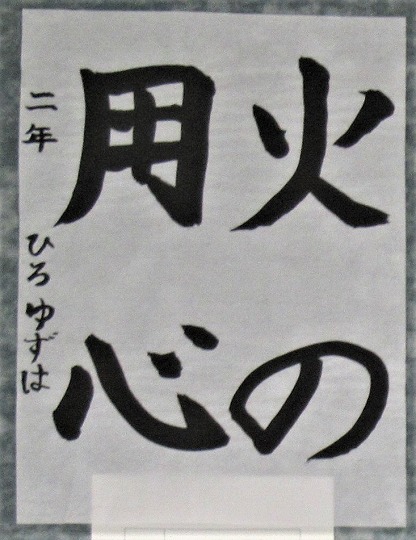 火の
用心
二年 ひろゆずは